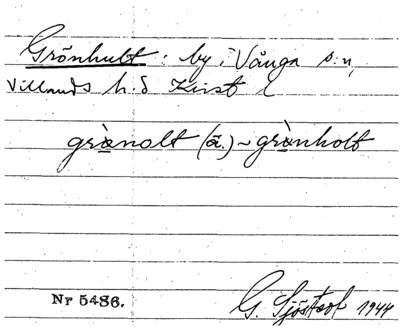 Grönhult: by i Vånga s:n,
Villands h:d Krist l
grànolt (ä.) ~ grànholt
Nr 5486. G. Sjöstedt 1944